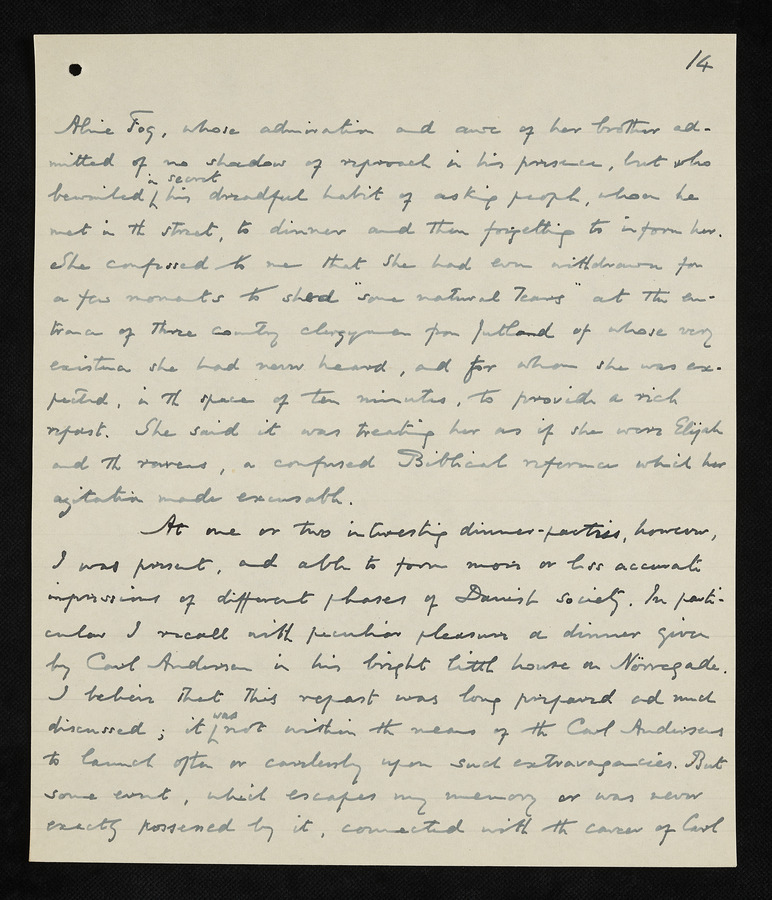 14
Aline Fog, whose admiration and awe of her brother ad-
mitted of no shadow of reproach in his presence, but who
in secret
bewailed his dreadful habit of asking people, whom he
met in th street, to dinner and then forgetting to inform her.
She confessed to me that she had even withdrawn for
a few moments to shed "some natural tears" at the en-
trance of three country clergymen from Jutland of whose very
existence she had never heard, and for whom she was ex-
pected, in th space of ten minutes, to provide a rich
repast. She said it was treating her as if she were Elijah
and th ravens, a confused Biblical reference which her
agitation made excusable.
At one or two interesting dinner-parties, however,
I was present, and able to form more or less accurate
impressions of different phases of Danish society. In parti-
cular I recall with peculiar pleasure a dinner given
by Carl Andersen in his bright little house on Nörregade.
I believe that this repast was long prepared and much
was
discussed; it not within th means of th Carl Andersens
to launch often or carelessly upon such extravagancies. But
some event, which escapes my memory or was never
exactly possessed by it, connected with th career of Carl